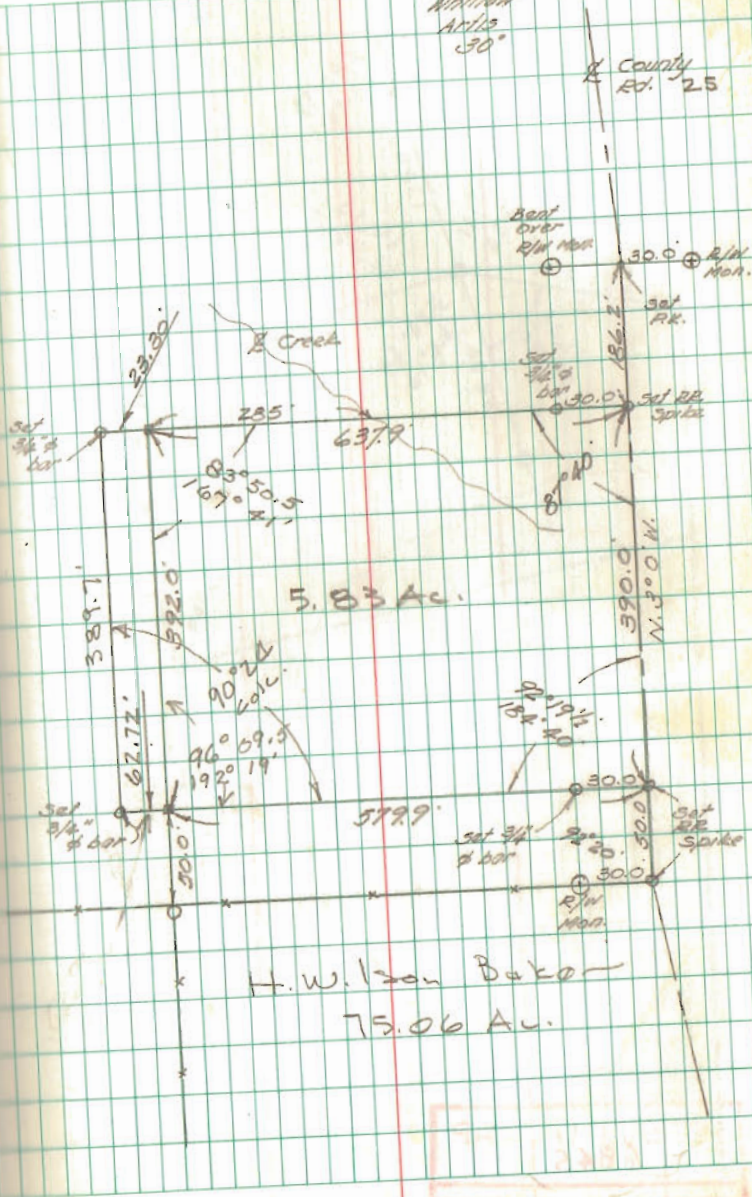 Artis
30°
℄ County
Rd. 25
Bent
Over
R/W Mon.
30.0'
R/W
Mon.
Set
PK.
186.2'
23.30'
℄ Creek
Set
3/4" φ
bar
30.0'
Set RR
Spike
Set
3/4" φ
bar
285'
637.9'
83° 50.5
167° 41'
390.0'
N. 3° 0' W.
389.7'
392.0'
5.83 Ac.
90° 21
Calc.
92° 19 1/2
184° 40'
62.72'
96° 09.5
192° 19'
Set
3/4"
φ bar
50.0'
579.9'
30.0'
Set 3/4"
φ bar
92° 20'
50.0'
Set
RR
Spike
30.0'
R/W
Mon.
H. Wilson Baker
75.06 Ac.